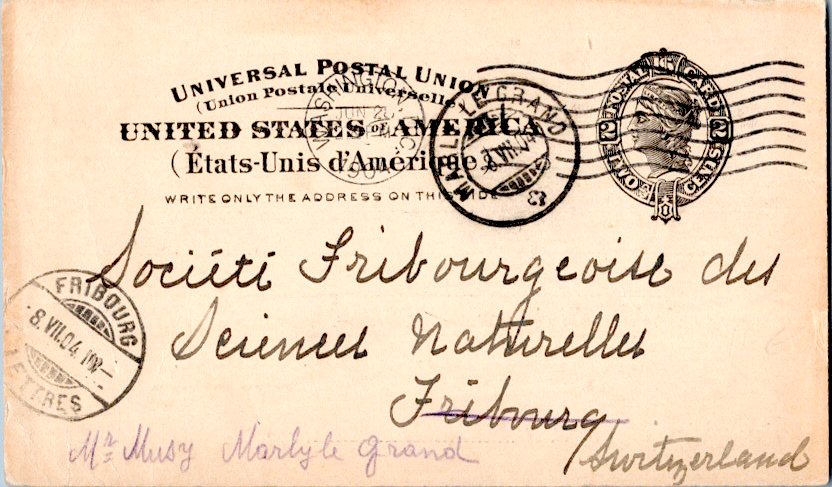 UNIVERSAL POSTAL UNION
(Union Postale Universelle)
UNITED STATES OF AMERICA
(États-Unis d'Amérique)
WRITE ONLY THE ADDRESS ON THIS SIDE
WASHINGTON, D.C.
JUN 2
1904
MARLY LE GRAND
8.VII.04
POSTAL CARD
2 TWO CENTS 2
Société Fribourgeoise des
Sciences Naturelles
Fribourg
Switzerland
FRIBOURG
8.VII.04.
LETTRES
Mr Musy Marlyle Grand